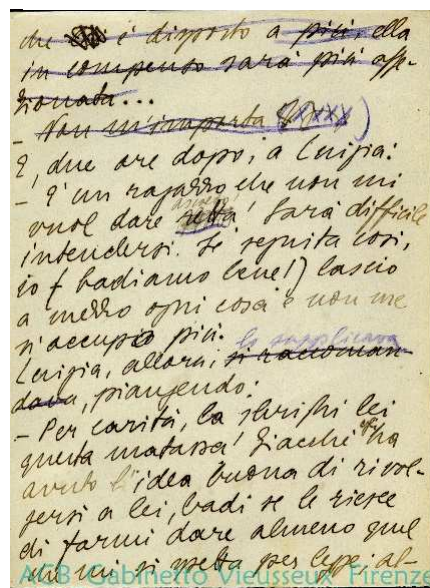 che è disposto a più, ella
in compenso sarà più affe-
zionata...
- Non m'importa
E, due ore dopo, a Luigia:
- È un ragazzo che non mi
vuol dare retta! Sarà difficile
intendersi. Se seguita così,
io (badiamo bene!) lascio
a mezzo ogni cosa e non me
n'accupo più.
Luigia, allora, la supplicava
si raccoman-
dava, piangendo:
- Per carità, la sbrighi lei
questa matassa! Giacché ha
avuto l'idea buona di rivol-
gersi a lei, badi se le riesce
di farmi dare almeno quel
che mi si spetta per legge: al-
ACB Gabinetto Vieusseux Firenze